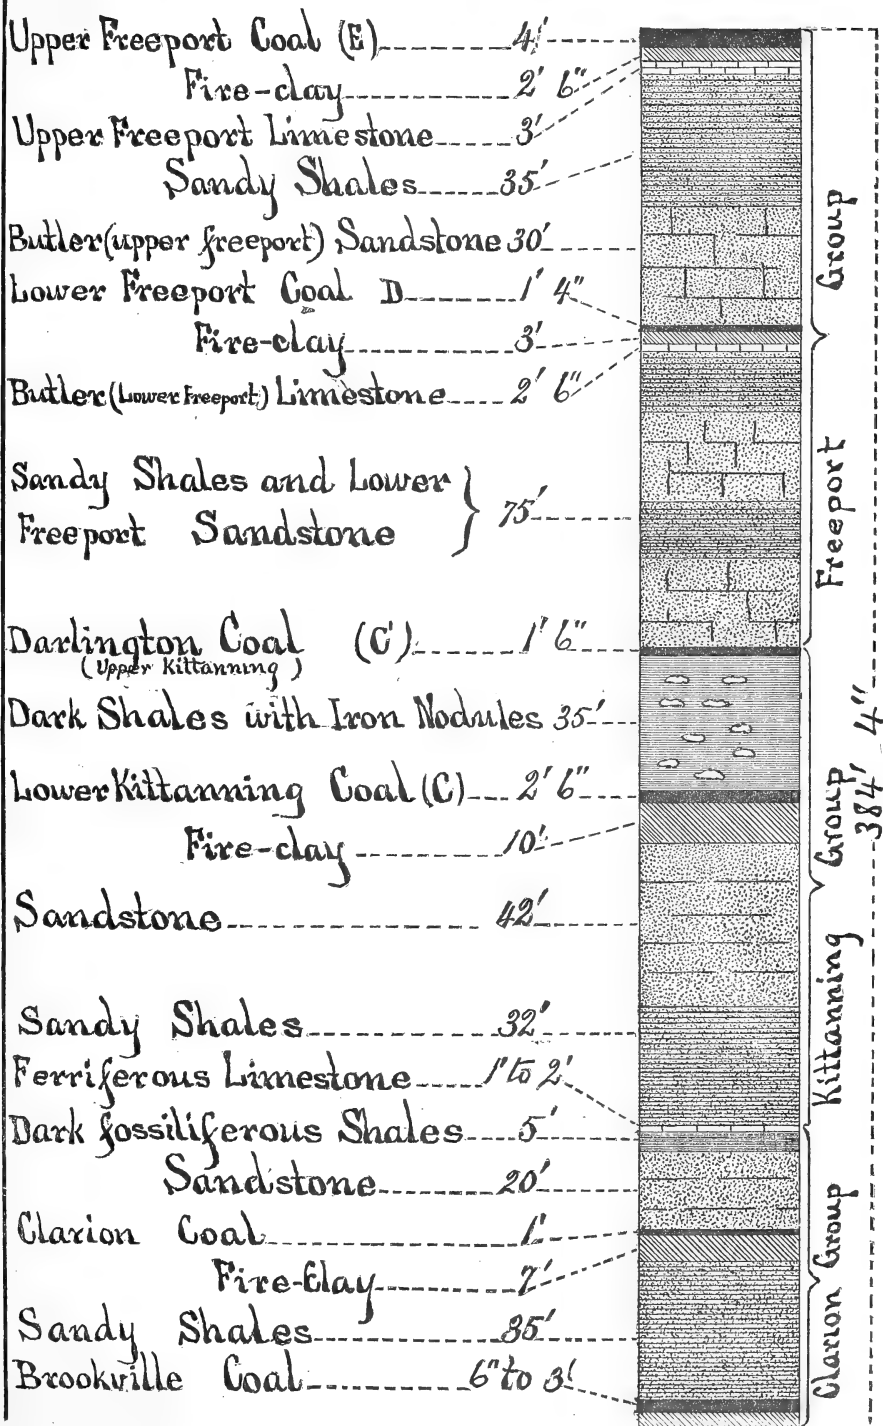 Upper Freeport Coal (E) 4'
Fire-clay 2' 6"
Upper Freeport Limestone 3'
Sandy Shales 35'
Butler (upper freeport) Sandstone 30'
Lower Freeport Coal D 1' 4"
Fire-clay 3'
Butler (Lower Freeport) Limestone 2' 6"
Sandy Shales and Lower
Freeport Sandstone } 75'
Darlington Coal (C') 1' 6"
(Upper Kittanning)
Dark Shales with Iron Nodules 35'
Lower Kittanning Coal (C) 2' 6"
Fire-clay 10'
Sandstone 42'
Sandy Shales 32'
Ferriferous Limestone 1' to 2'
Dark fossiliferous Shales 5'
Sandstone 20'
Clarion Coal 1'
Fire-Clay 7'
Sandy Shales 35'
Brookville Coal 6" to 3'
Freeport Group
Kittanning Group
Clarion Group
384' 4"